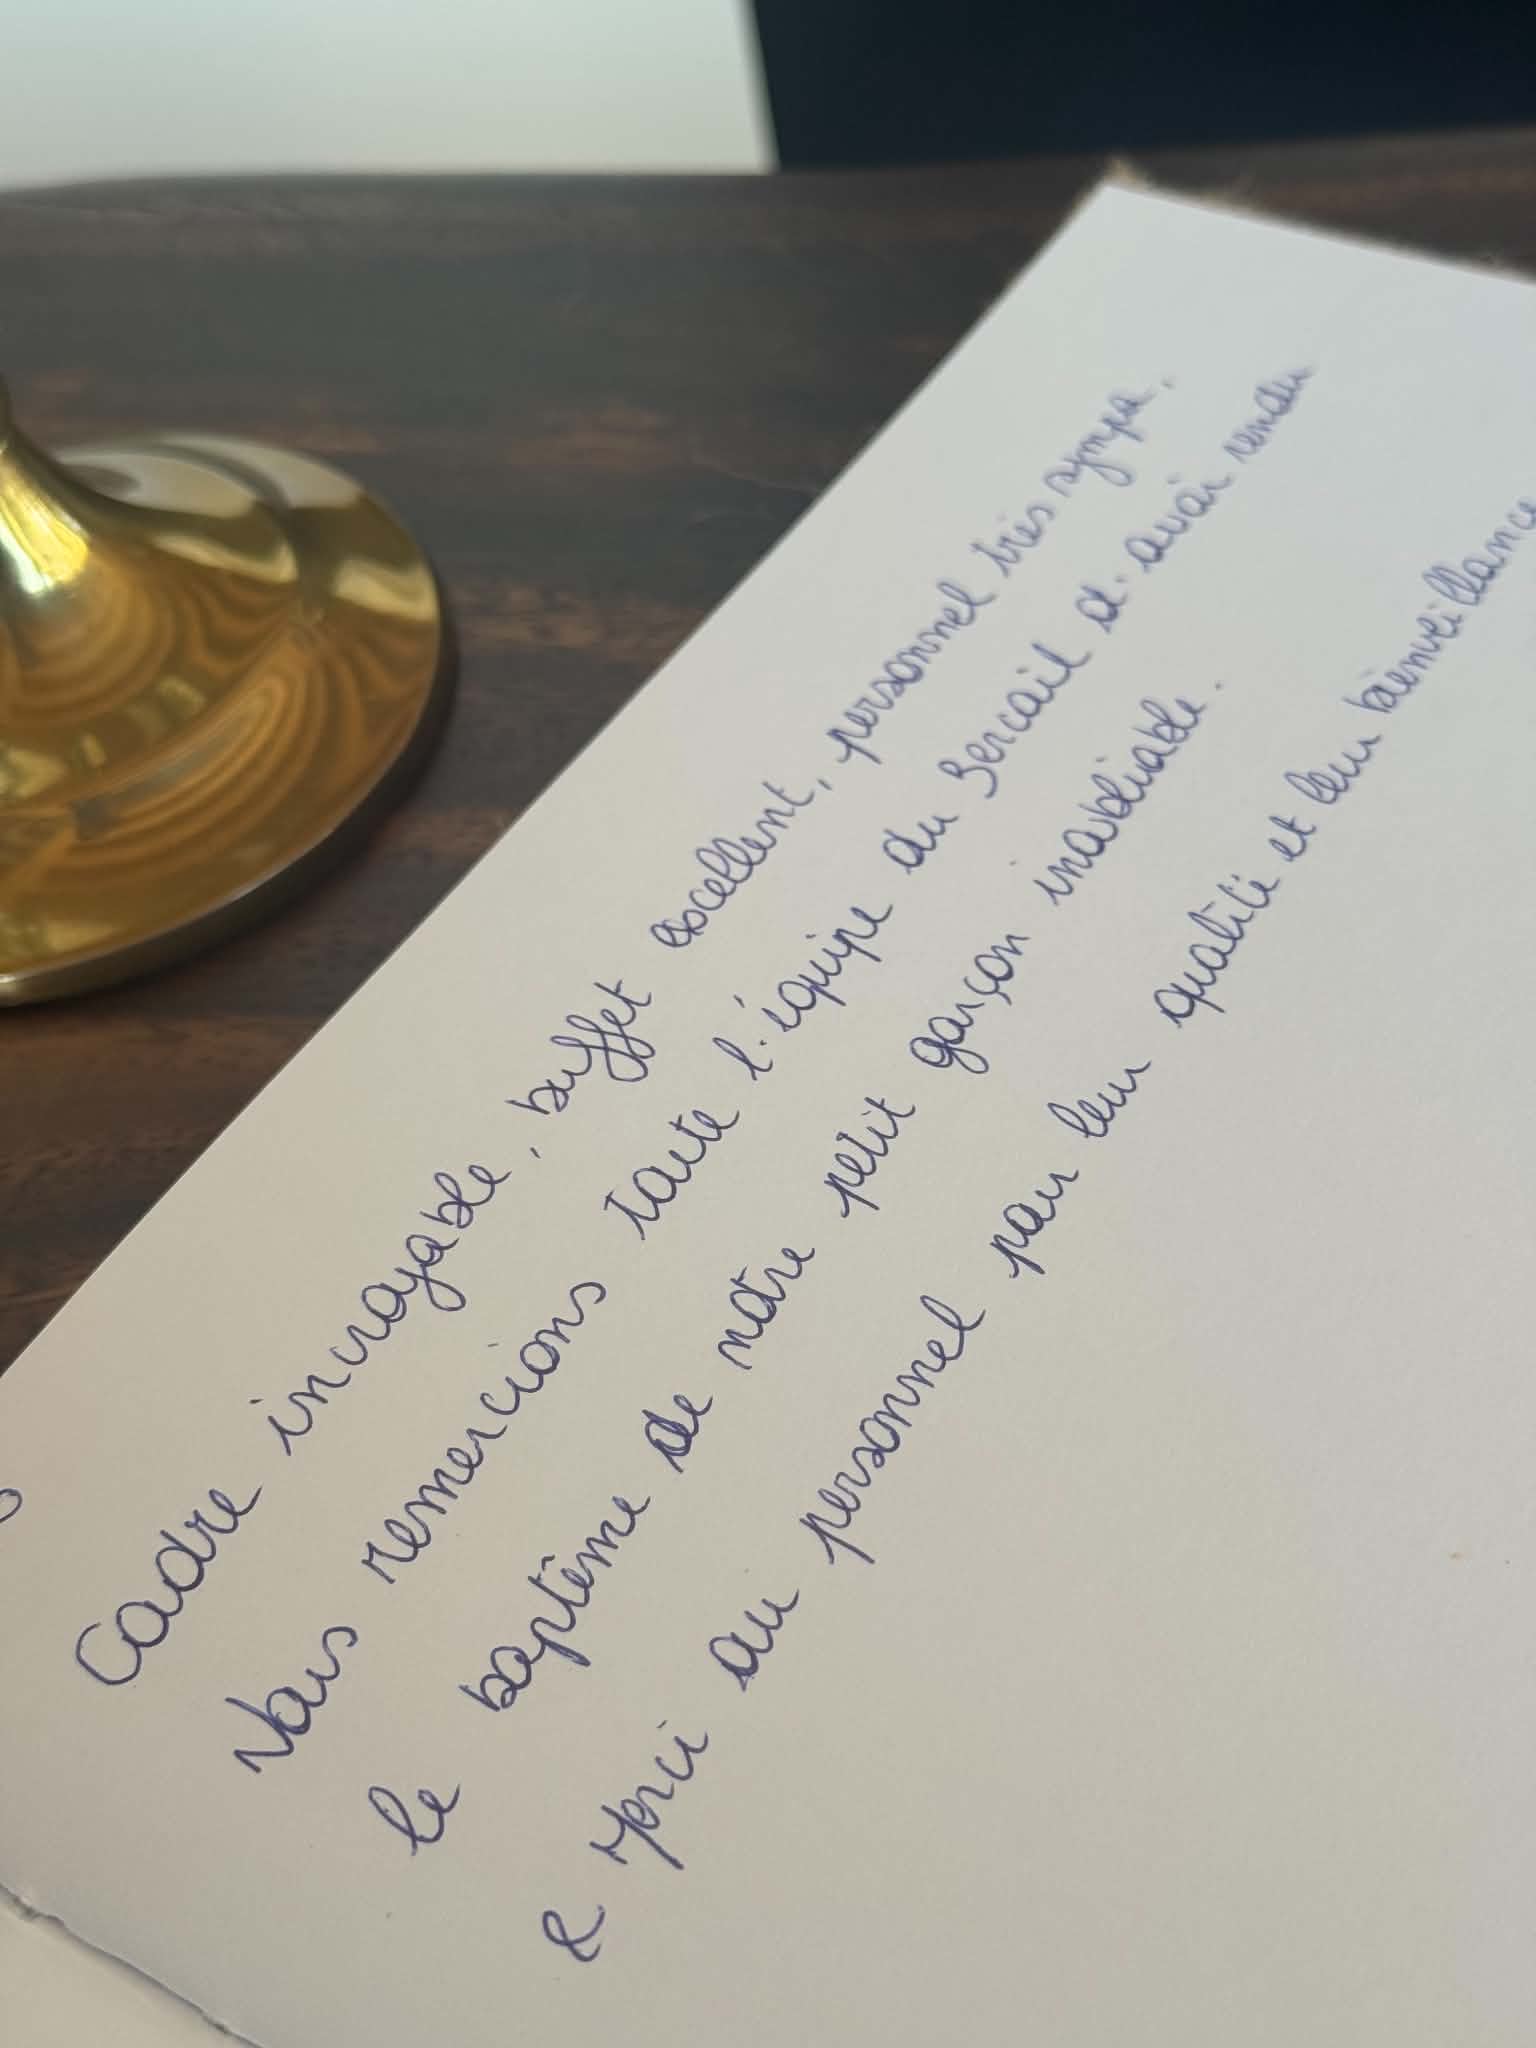 Cadre incroyable, buffet excellent, personnel très sympa,
Nous remercions toute l'équipe du Bercail d'avoir rendu
le baptême de notre petit garçon inoubliable.
& Merci au personnel pour leur qualité et leur bienveillance